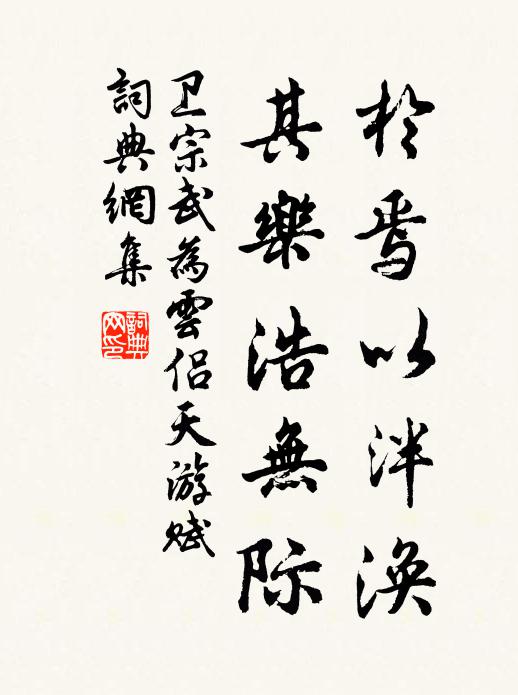 於焉以泮渙
其樂浩無际
卫宗武為雲侶天游賦
詞典網集
詞典网印